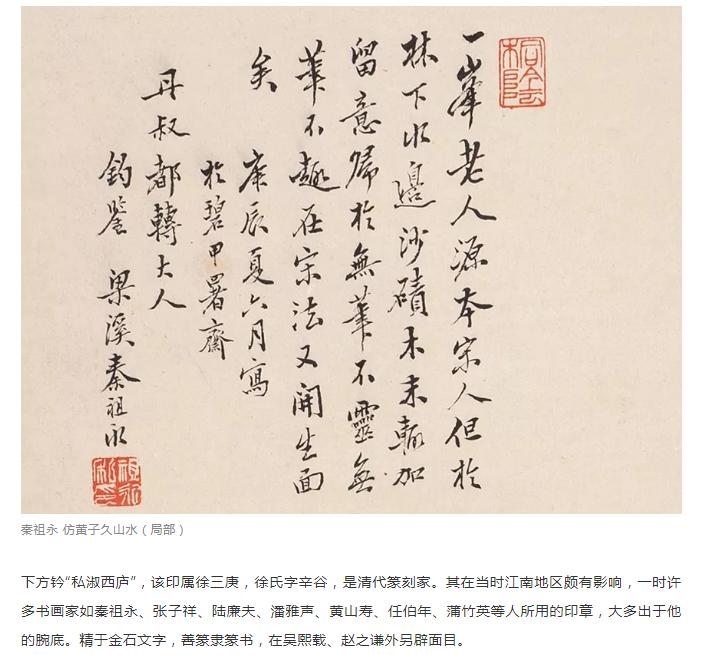 一峯老人源本宋人但於
林下水邊沙磧木末輒加
留意歸於無筆不靈無
筆不趣在宋法又開生面
矣 庚辰夏六月寫
於碧甲署齋
丹叔都轉大人
鈞鑒 梁溪秦祖永
祖永私印
秦祖永 仿黄子久山水（局部）
下方钤“私淑西庐”，该印属徐三庚，徐氏字辛谷，是清代篆刻家。其在当时江南地区颇有影响，一时许
多书画家如秦祖永、张子祥、陆廉夫、潘雅声、黄山寿、任伯年、蒲竹英等人所用的印章，大多出于他
的腕底。精于金石文字，善篆隶篆书，在吴熙载、赵之谦外另辟面目。